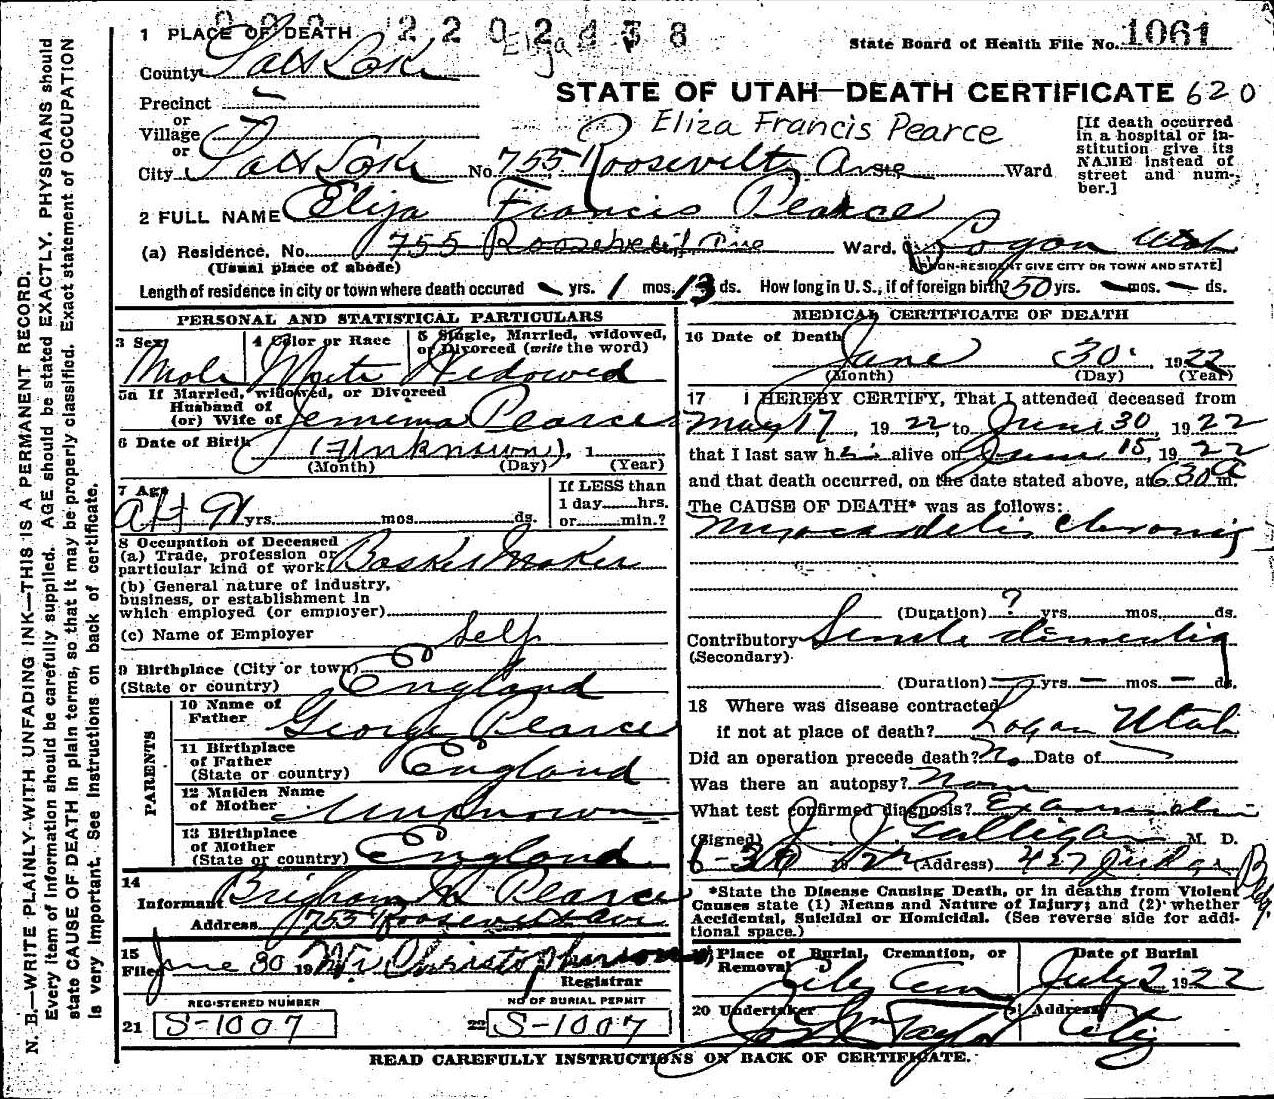 1 PLACE OF DEATH
2202438
Eliza
State Board of Health File No. 1061
County Salt Lake
STATE OF UTAH—DEATH CERTIFICATE 620
Precinct
or
Village
or
Eliza Francis Pearce
[If death occurred in a hospital or institution give its NAME instead of street and number.]
City Salt Lake No. 755 Roosevelt Ave Ward
2 FULL NAME Eliza Francis Pearce
(a) Residence. No. 755 Roosevelt Ave Ward, Logan Utah
(Usual place of abode) [If NON-RESIDENT GIVE CITY OR TOWN AND STATE]
Length of residence in city or town where death occured - yrs. 1 mos. 13 ds. How long in U.S., if of foreign birth? 50 yrs. — mos. — ds.
PERSONAL AND STATISTICAL PARTICULARS
3 Sex Male
4 Color or Race White
5 Single, Married, widowed, or Divorced (write the word) Widowed
5a If Married, widowed, or Divorced
Husband of
(or) Wife of Jemema Pearce
6 Date of Birth (Unknown), 1
(Month) (Day) (Year)
7 Age abt 91 yrs. mos. ds.
If LESS than 1 day hrs. or min.?
8 Occupation of Deceased
(a) Trade, profession or particular kind of work Basket Maker
(b) General nature of industry, business, or establishment in which employed (or employer)
(c) Name of Employer Self
9 Birthplace (City or town)
(State or country) England
PARENTS
10 Name of Father George Pearce
11 Birthplace of Father (State or country) England
12 Maiden Name of Mother Unknown
13 Birthplace of Mother (State or country) England
14
Informant Brigham M Pearce
Address 755 Roosevelt Ave
15
Filed June 30 19 Christopherson
Registrar
REGISTERED NUMBER
21 S-1007
NO OF BURIAL PERMIT
22 S-1007
MEDICAL CERTIFICATE OF DEATH
16 Date of Death
June 30 1922
(Month) (Day) (Year)
17 I HEREBY CERTIFY, That I attended deceased from
May 17, 1922, to June 30, 1922
that I last saw him alive on June 15, 1922
and that death occurred, on the date stated above, at 630 a m.
The CAUSE OF DEATH* was as follows:
Myocardetis chronic
(Duration) ? yrs. mos. ds.
Contributory Senile dementia
(Secondary)
(Duration) — yrs. — mos. — ds.
18 Where was disease contracted
if not at place of death? Logan Utah
Did an operation precede death? No. Date of
Was there an autopsy? None
What test confirmed diagnosis? Examination
(Signed) J. J. Galligan M. D.
6-30 1922 (Address) 427 Judge Bldg.
*State the Disease Causing Death, or in deaths from Violent Causes state (1) Means and Nature of Injury; and (2) whether Accidental, Suicidal or Homicidal. (See reverse side for additional space.)
Place of Burial, Cremation, or Removal City Cem
Date of Burial July 2 1922
20 Undertaker Taylor
Address City
READ CAREFULLY INSTRUCTIONS ON BACK OF CERTIFICATE.
N. B.—WRITE PLAINLY WITH UNFADING INK—THIS IS A PERMANENT RECORD.
Every item of information should be carefully supplied. AGE should be stated EXACTLY. PHYSICIANS should
state CAUSE OF DEATH in plain terms, so that it may be properly classified. Exact statement of OCCUPATION
is very important. See instructions on back of certificate.